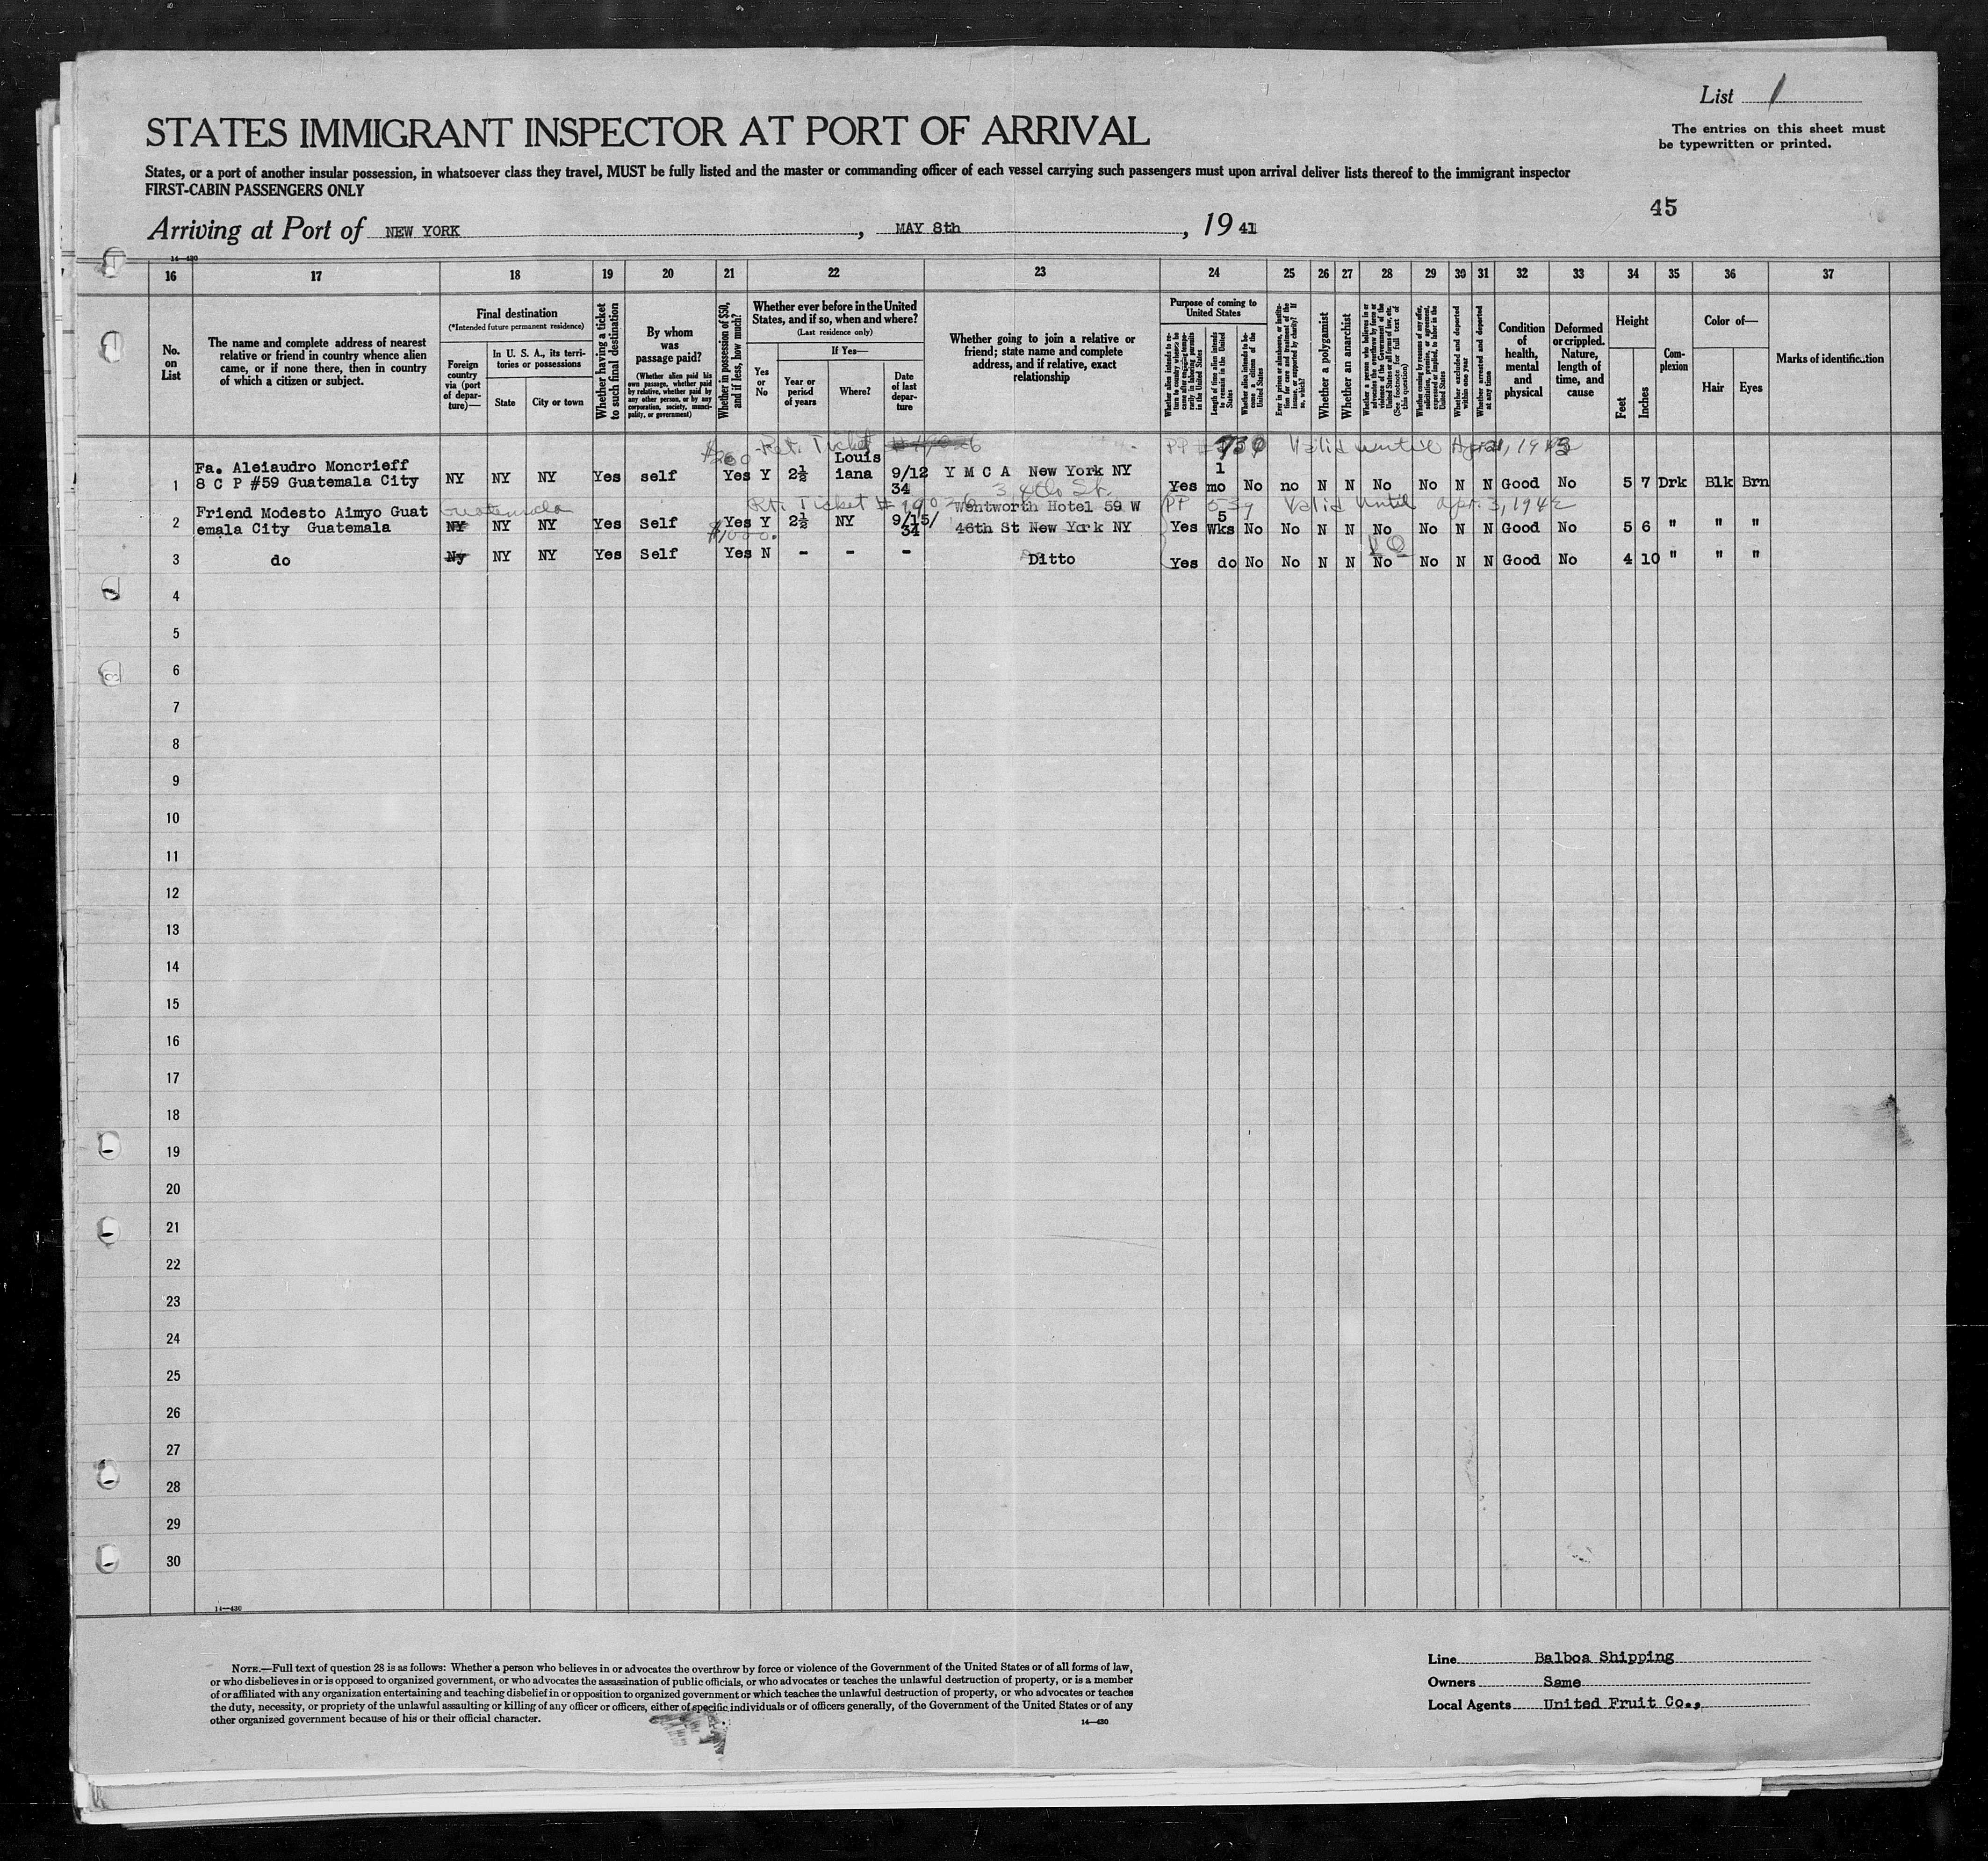 List 1
STATES IMMIGRANT INSPECTOR AT PORT OF ARRIVAL
The entries on this sheet must
be typewritten or printed.
States, or a port of another insular possession, in whatsoever class they travel, MUST be fully listed and the master or commanding officer of each vessel carrying such passengers must upon arrival deliver lists thereof to the immigrant inspector
FIRST-CABIN PASSENGERS ONLY
45
Arriving at Port of NEW YORK, MAY 8th, 19 41
14—430
16 17 18 19 20 21 22 23 24 25 26 27 28 29 30 31 32 33 34 35 36 37
No. on List
The name and complete address of nearest relative or friend in country whence alien came, or if none there, then in country of which a citizen or subject.
Final destination
(*Intended future permanent residence)
Foreign country via (port of departure)—
In U. S. A., its territories or possessions
State
City or town
Whether having a ticket to such final destination
By whom was passage paid?
(Whether alien paid his own passage, whether paid by relative, whether paid by any other person, or by any corporation, society, municipality, or government)
Whether in possession of $50, and if less, how much?
Whether ever before in the United States, and if so, when and where?
(Last residence only)
Yes or No
If Yes—
Year or period of years
Where?
Date of last departure
Whether going to join a relative or friend; state name and complete address, and if relative, exact relationship
Purpose of coming to United States
Whether alien intends to return to country whence he came after engaging temporarily in laboring pursuits in the United States
Length of time alien intends to remain in the United States
Whether alien intends to become a citizen of the United States
Ever in prison or almshouse, or institution for care and treatment of the insane, or supported by charity? If so, which?
Whether a polygamist
Whether an anarchist
Whether a person who believes in or advocates the overthrow by force or violence of the Government of the United States or all forms of law, etc. (See footnote for full text of this question)
Whether coming by reason of any offer, solicitation, promise, or agreement, expressed or implied, to labor in the United States
Whether excluded and deported within one year
Whether arrested and deported at any time
Condition of health, mental and physical
Deformed or crippled. Nature, length of time, and cause
Height
Feet
Inches
Complexion
Color of—
Hair
Eyes
Marks of identification
$200 Ret. Ticket PP # Valid until
Fa. Aleiaudro Moncrieff Louis 1
1 8 C P #59 Guatemala City NY NY NY Yes self Yes Y 2½ iana 9/12 34 Y M C A New York NY Yes mo No no N N No No N N Good No 5 7 Drk Blk Brn
Guatemala Ret. Ticket # PP Valid until Apr. 3, 1942
Friend Modesto Aimyo Guat Wentworth Hotel 59 W 5
2 emala City Guatemala NY NY NY Yes Self Yes Y 2½ NY 9/15/ 34 46th St New York NY Yes Wks No No N N No No N N Good No 5 6 " " "
$1000.
3 do Ny NY NY Yes Self Yes N - - - Ditto Yes do No No N N No No N N Good No 4 10 " " "
4
5
6
7
8
9
10
11
12
13
14
15
16
17
18
19
20
21
22
23
24
25
26
27
28
29
30
14—430
NOTE.—Full text of question 28 is as follows: Whether a person who believes in or advocates the overthrow by force or violence of the Government of the United States or of all forms of law,
or who disbelieves in or is opposed to organized government, or who advocates the assassination of public officials, or who advocates or teaches the unlawful destruction of property, or is a member
of or affiliated with any organization entertaining and teaching disbelief in or opposition to organized government or which teaches the unlawful destruction of property, or who advocates or teaches
the duty, necessity, or propriety of the unlawful assaulting or killing of any officer or officers, either of specific individuals or of officers generally, of the Government of the United States or of any
other organized government because of his or their official character.
14—430
Line Balboa Shipping
Owners Same
Local Agents United Fruit Co.,